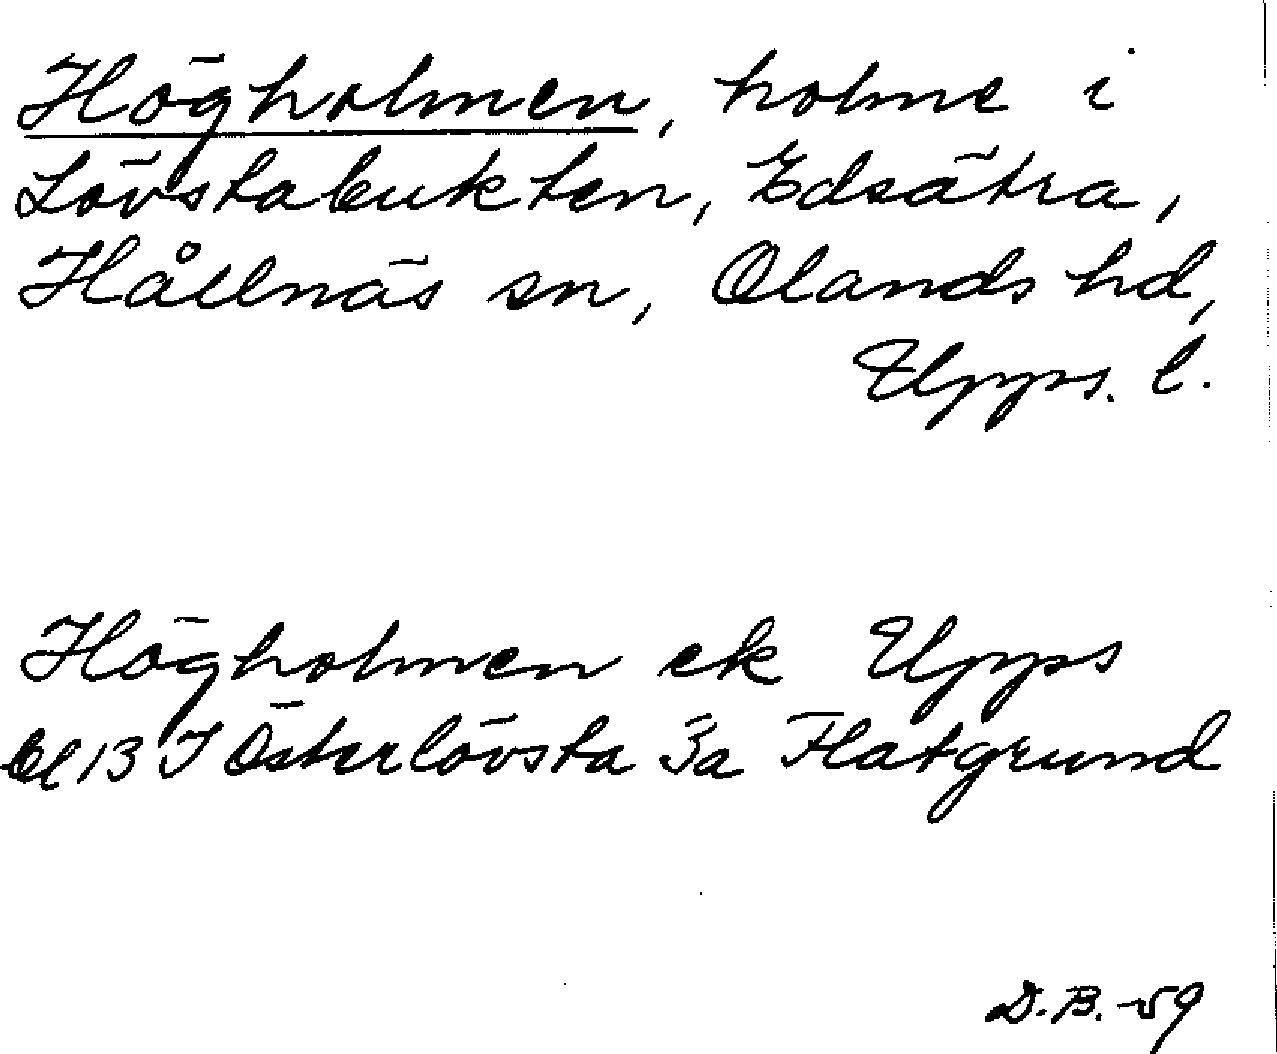 Högholmen, holme i
Lövstabukten, Edsätra,
Hållnäs sn, Olands hd,
Upps. l.
Högholmen ek Upps
bl 13 I Österlövsta 3a Flatgrund
D.B. -59